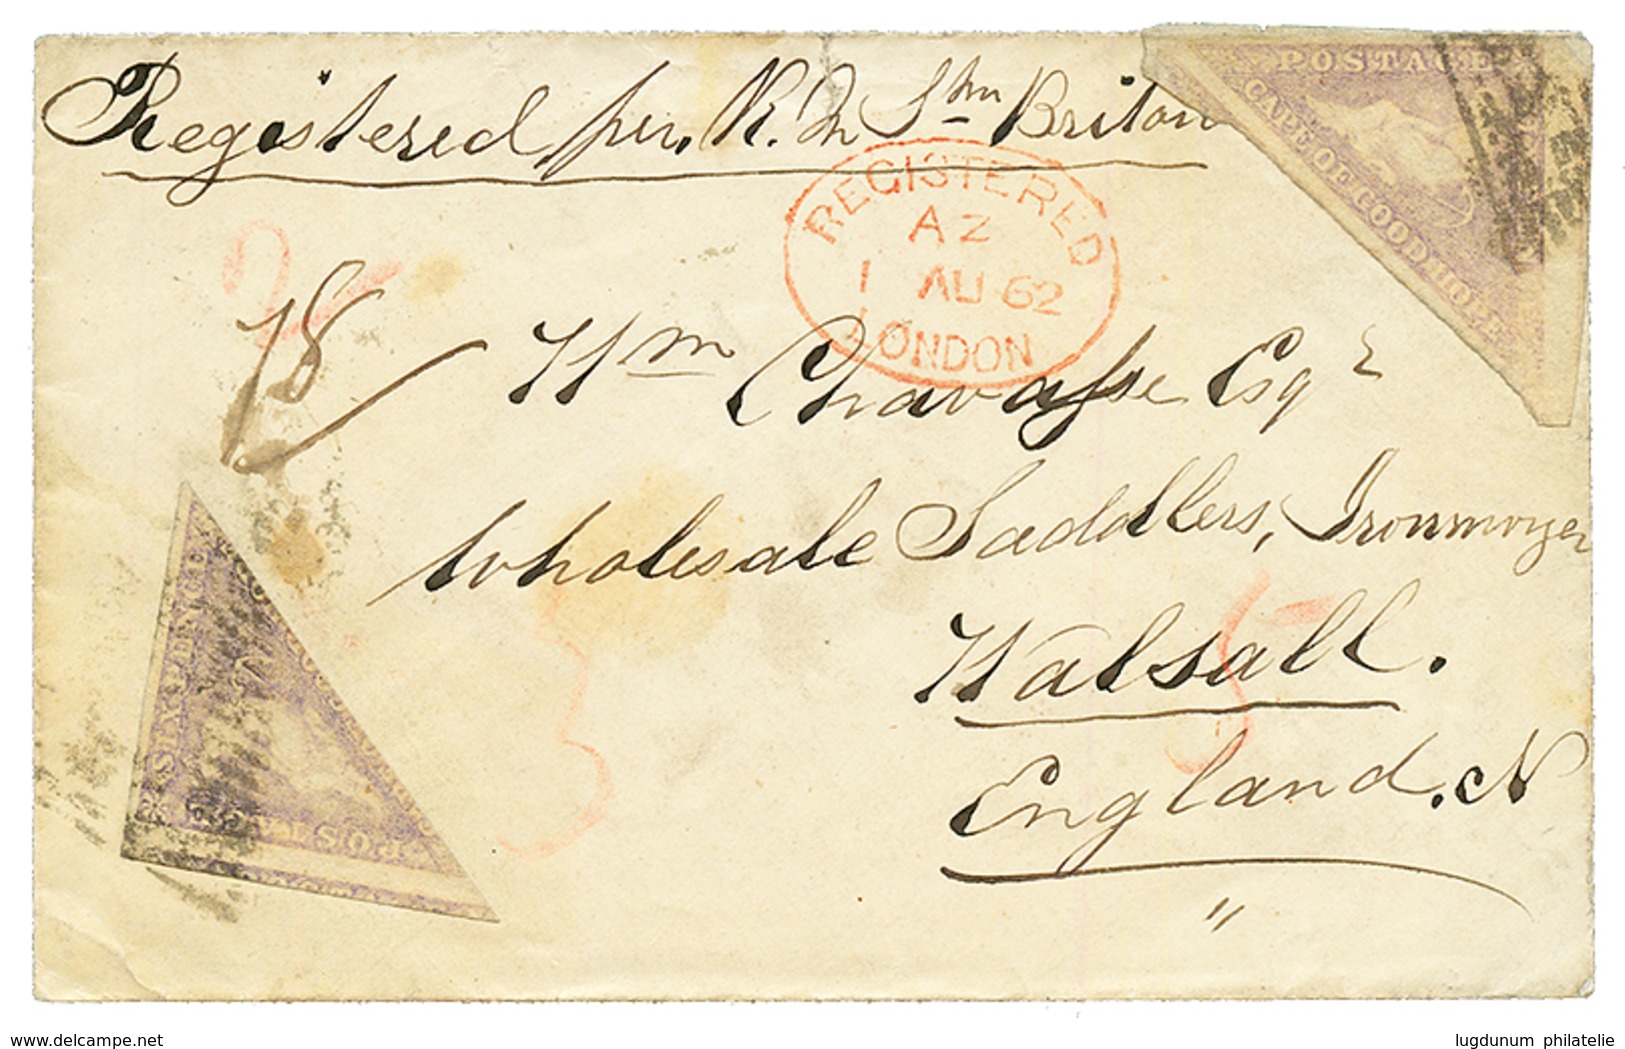 Registered per. R. M Stmr Briton
POSTAGE
CAPE OF GOOD HOPE
REGISTERED
AZ
1 AU 62
LONDON
18/
Wm Chavasse Esqr
Wholesale Saddlers, Ironmonger
Walsall.
England. N
SIXPENCE
POSTAGE
3
5
www.delcampe.net
lugdunum philatelie